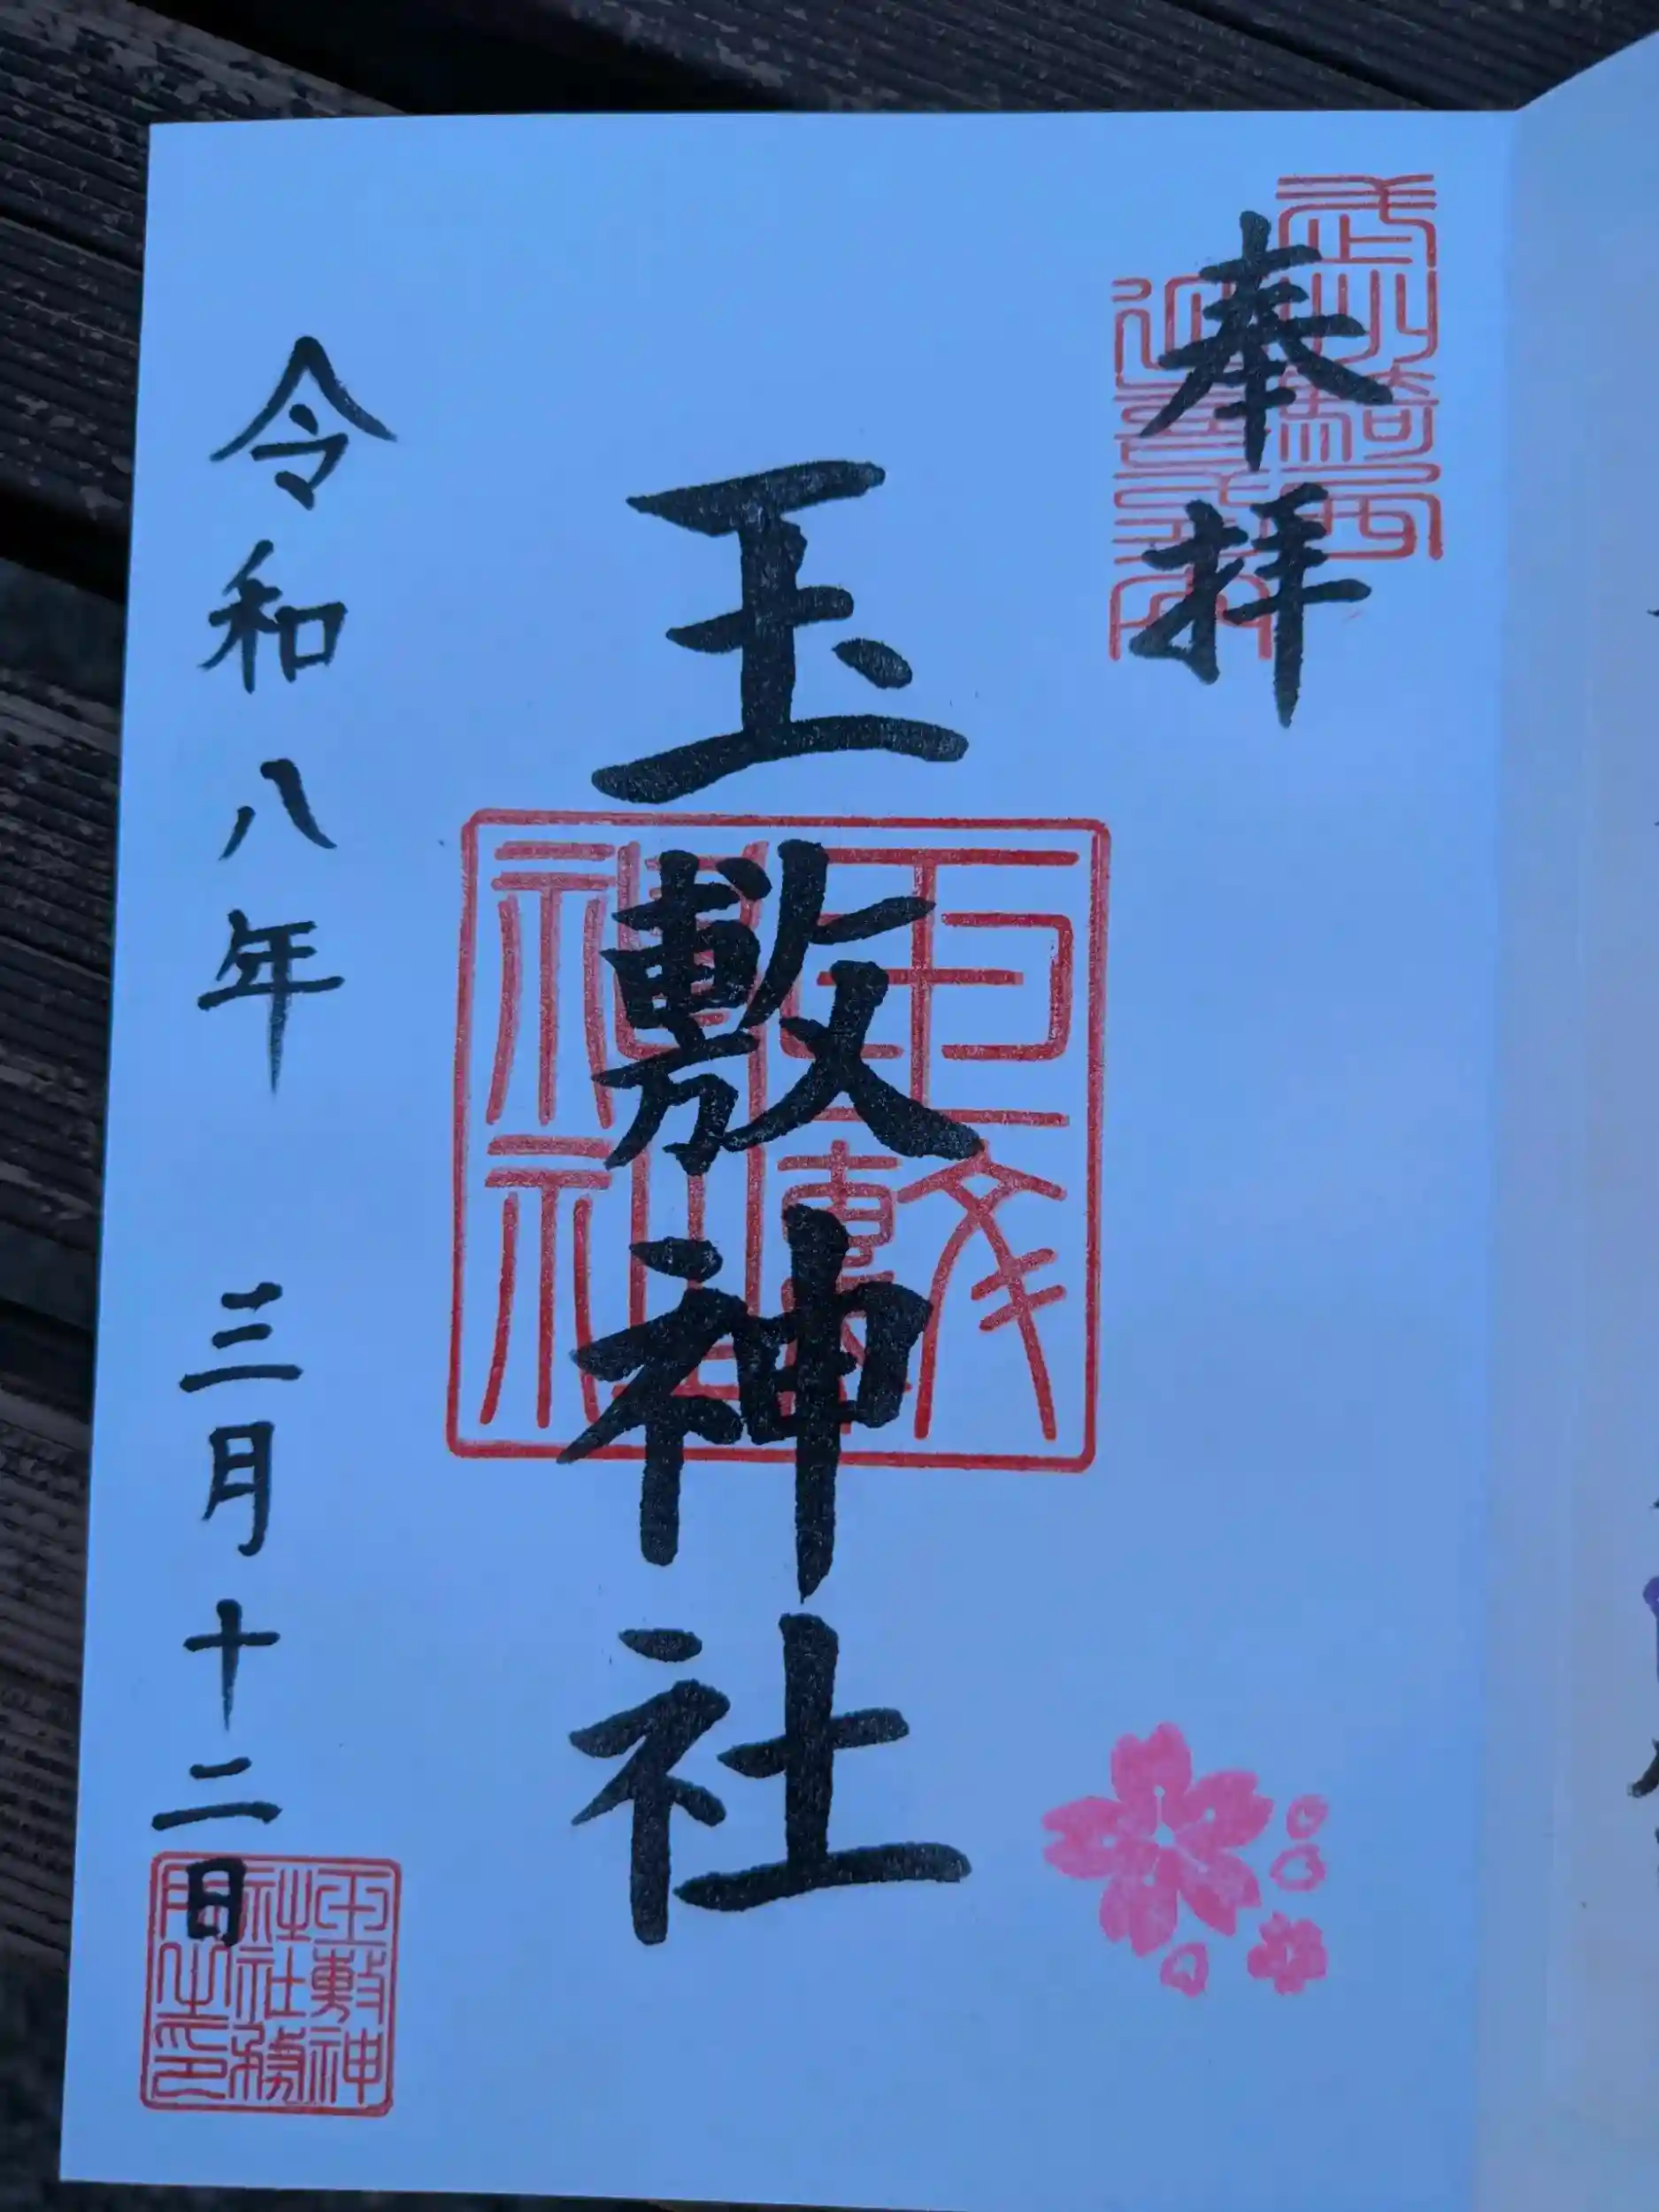 奉拝
玉敷神社
令和八年 三月十二日
玉敷
神社
玉敷神
社社務
所之印